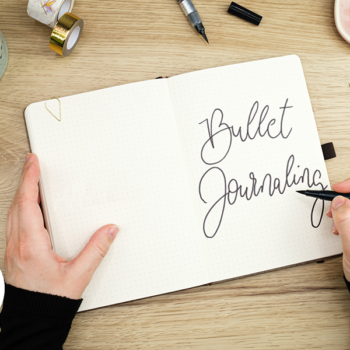 Bullet
Journaling